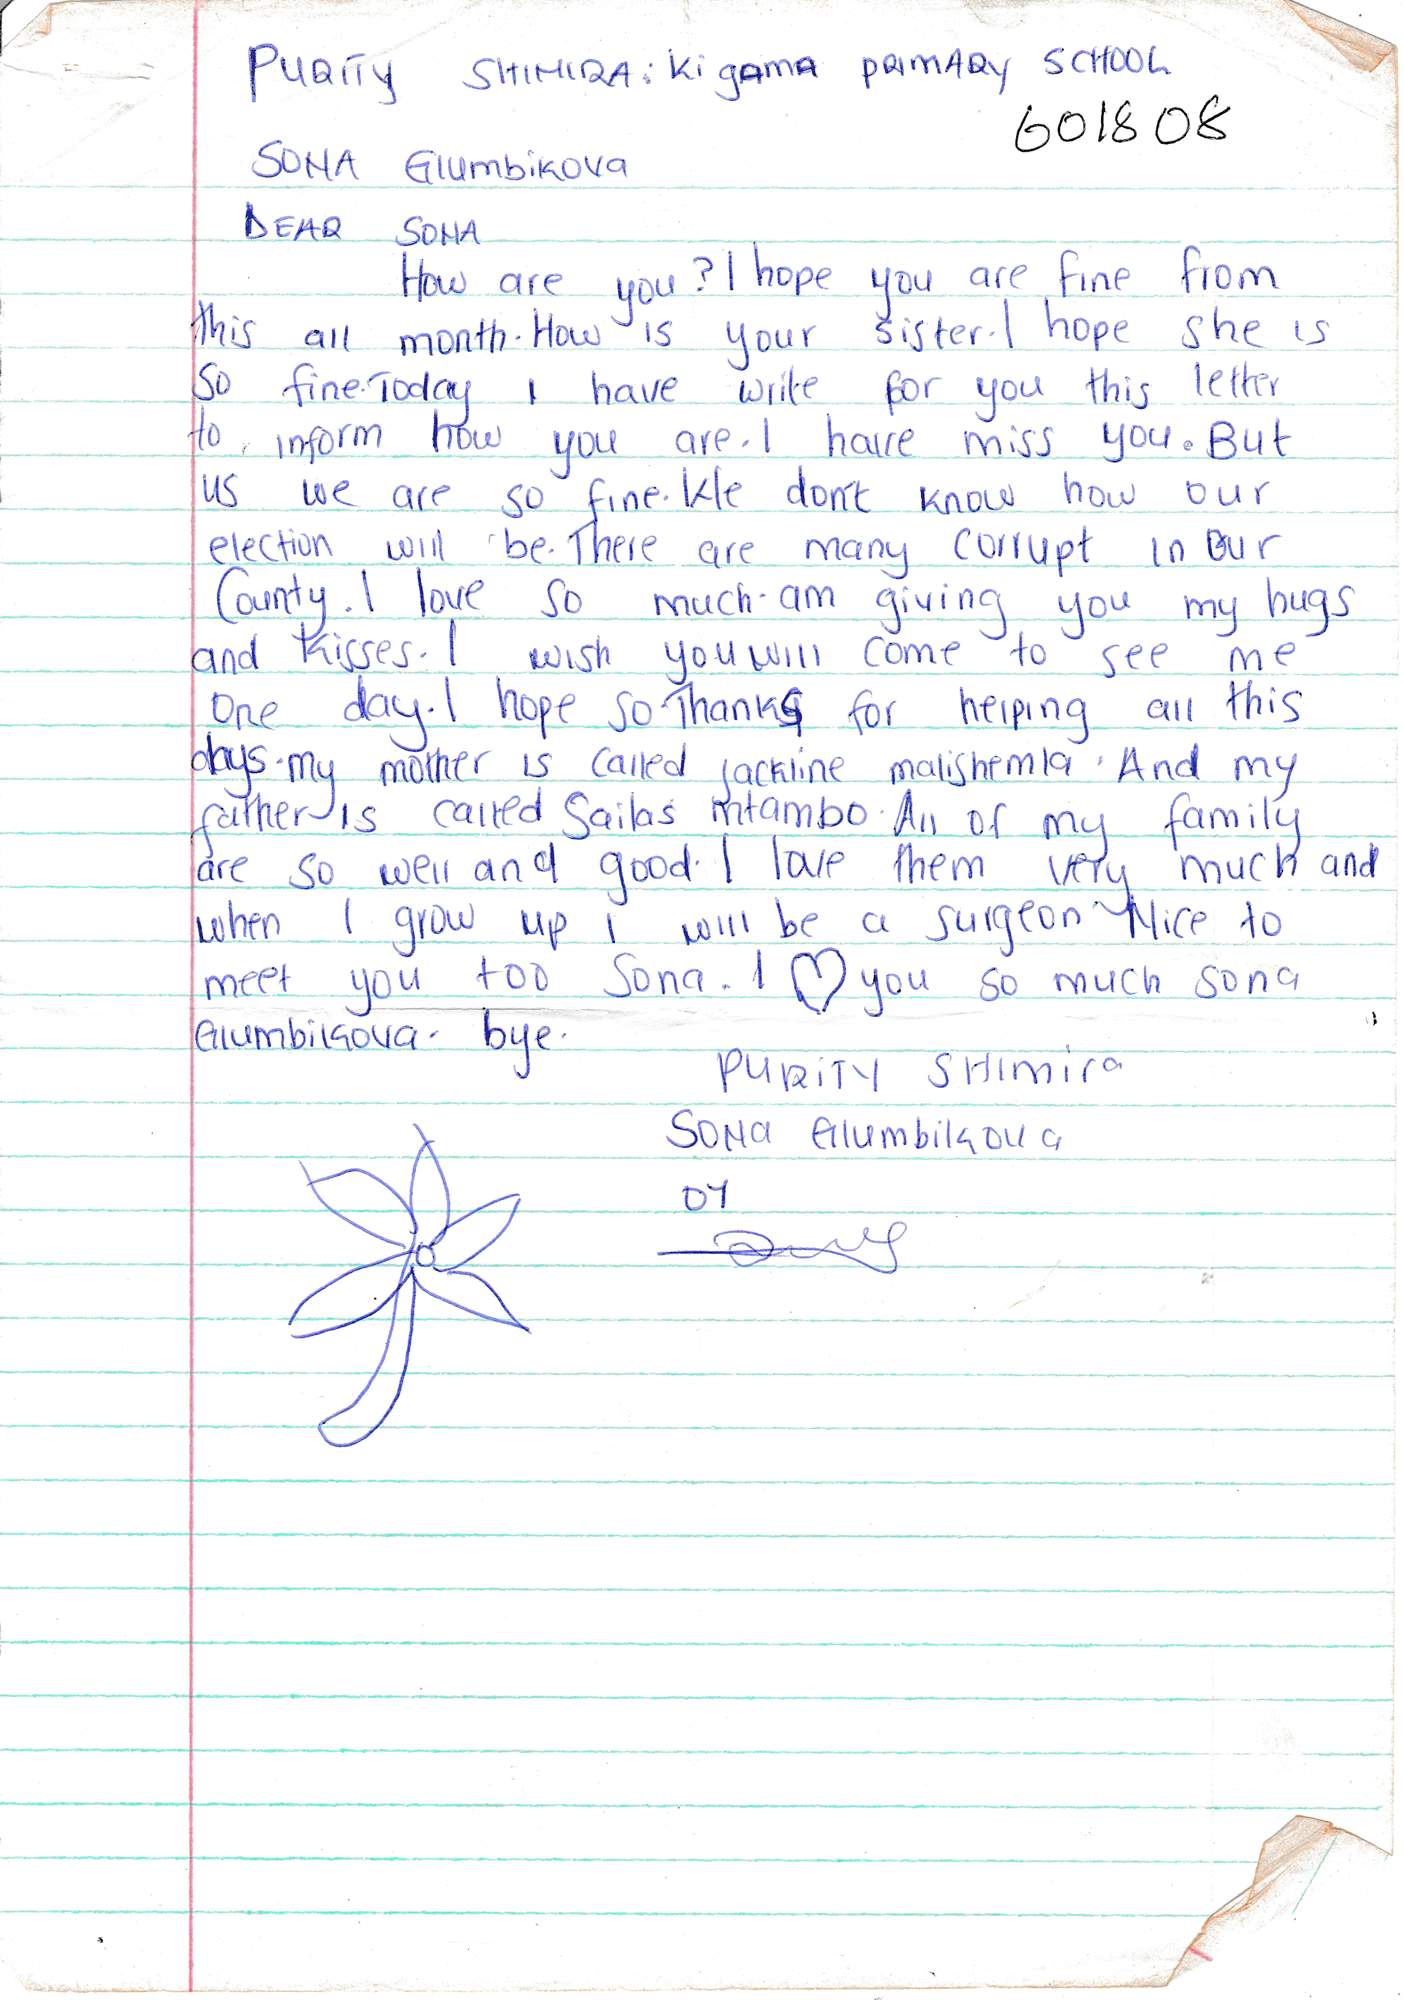 PURITY SHIMIRA: Kigama PRIMARY SCHOOL
601808
SONA Glumbikova
DEAR SONA
How are you? I hope you are fine from
this all month. How is your sister. I hope she is
so fine. Today I have write for you this letter
to inform how you are. I have miss you. But
us we are so fine. We don't know how our
election will be. There are many corrupt in our
County. I love so much. am giving you my hugs
and kisses. I wish you will come to see me
One day. I hope so. Thanks for helping all this
days. my mother is called jackline malishemla. And my
father is called Sailas mtambo. All of my family
are so well and good. I love them very much and
when I grow up i will be a surgeon. Nice to
meet you too Sona. I ♡ you so much sona
Glumbikova. bye.
PURITY SHimira
SONA Glumbikova